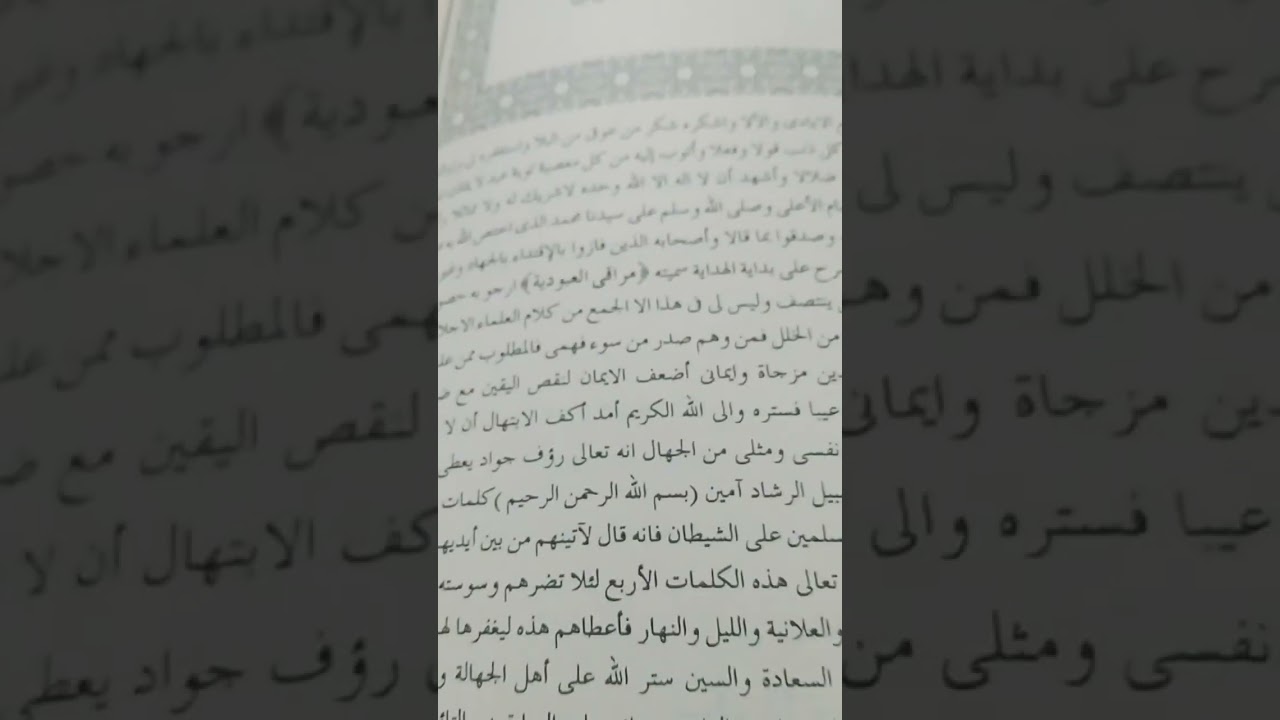 الايادى والآلا وأشكره شكر من عوفى من البلا وأستغفره
كل ذنب قولا وفعلا وأتوب إليه من كل معصية توبة عبد لا
ضلالا وأشهد أن لا اله الا الله وحده لا شريك له ولا
الأعلى وصلى الله وسلم على سيدنا محمد الذى اختص الله
وصدقوا بما قالا وأصحابه الذين فازوا بالإقتداء بالجهاد وغير
رح على بداية الهداية سميته ﴿مراقى العبودية﴾ ارجو به حصو
ينتصف وليس لى فى هذا الا الجمع من كلام العلماء الاجلا
من الخلل فمن وهم صدر من سوء فهمى فالمطلوب ممن عل
دين مزجاة وايمانى أضعف الايمان لنقص اليقين مع ض
عيبا فستره والى الله الكريم أمد أكف الابتهال أن لا
نفسى ومثلى من الجهال انه تعالى رؤف جواد يعطى
سبيل الرشاد آمين (بسم الله الرحمن الرحيم) كلمات
سلمين على الشيطان فانه قال لآتينهم من بين أيديه
تعالى هذه الكلمات الأربع لئلا تضرهم وسوسته
والعلانية والليل والنهار فأعطاهم هذه ليغفرها له
السعادة والسين ستر الله على أهل الجهالة و